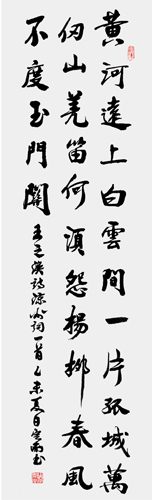 黃河遠上白雲間一片孤城萬
仞山羌笛何須怨楊柳春風
不度玉門關
王之渙詩涼州詞一首乙未夏日書